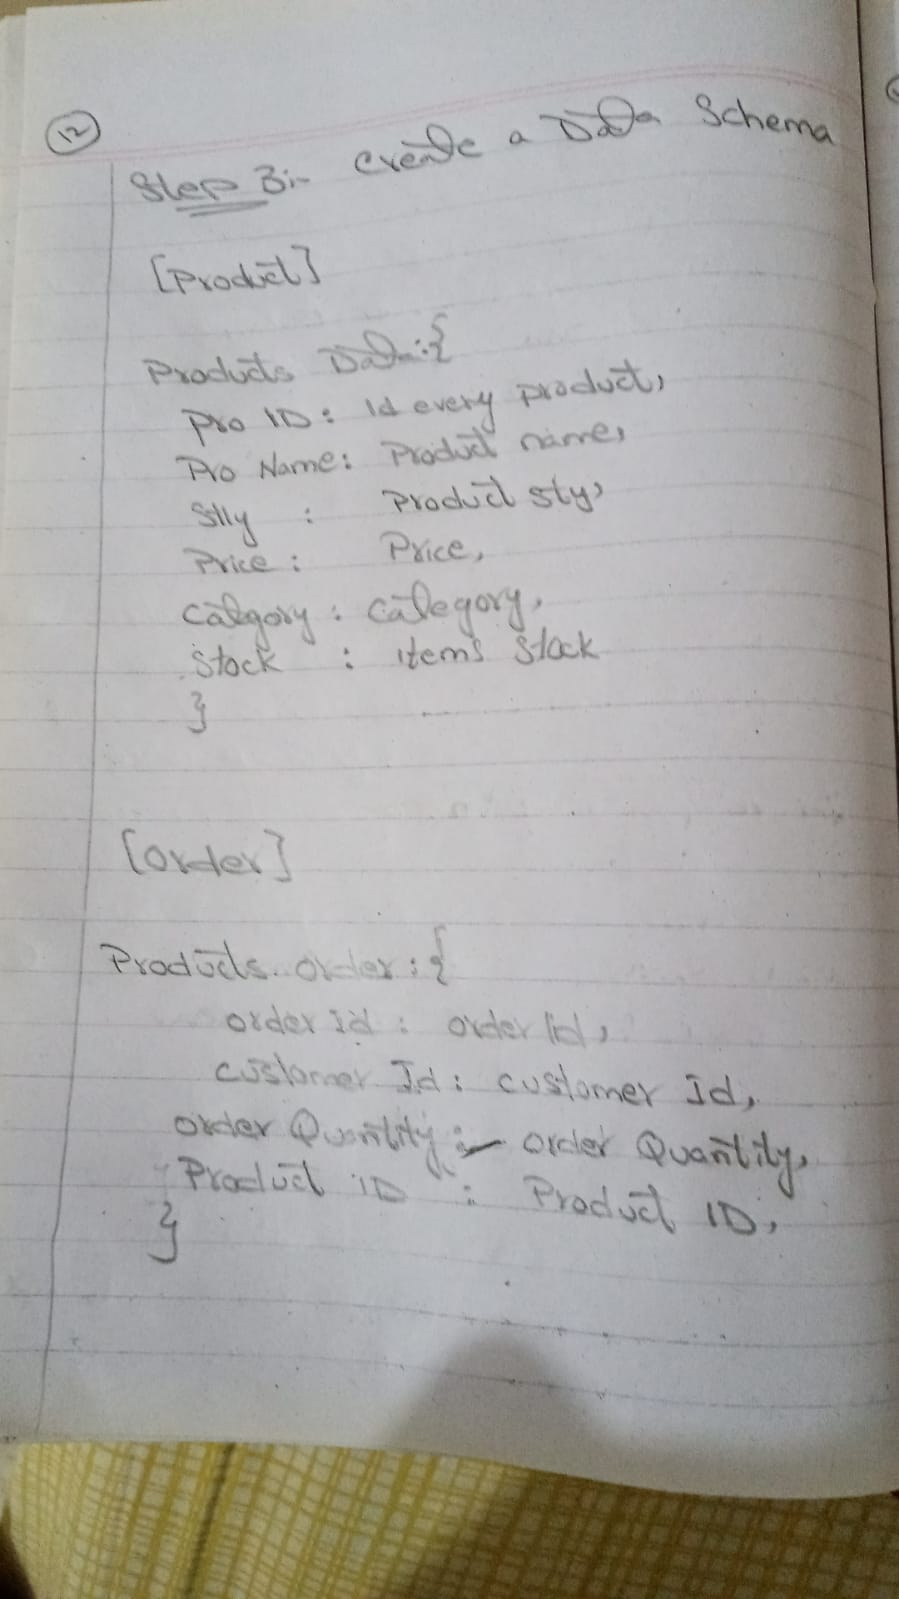 12
Step 3:- Create a Data Schema
[Product]
Products Data:{
Pro ID: Id every product,
Pro Name: Product name,
Slly : Product sty,
Price : Price,
Catgory : Category,
Stock : items Stock
}
[Order]
Products order:{
order Id : order Id,
customer Id : customer Id,
order Quantity :- order Quantity,
Product ID : Product ID,
}